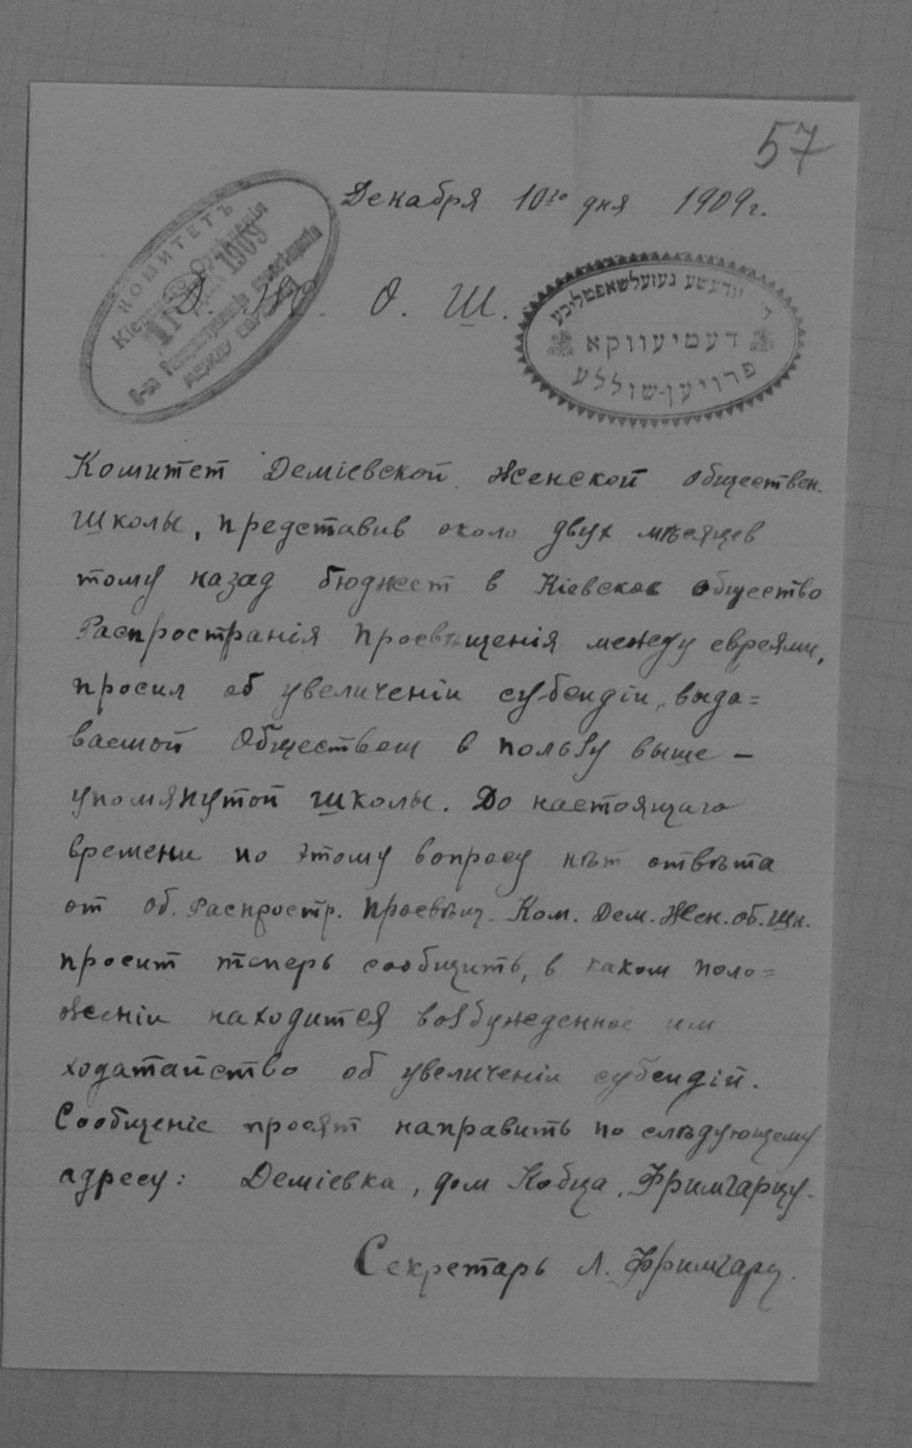 57
Декабря 10го дня 1909г.
КОМИТЕТЪ
1909
между
О. Ш.
געזעלשאפטליכע
דעמיעווקא
פרויען-שוללע
Комитет Деміевской Женской обществен.
Школы, представив около двух мѣсяцев
тому назад бюджет в Кіевское общество
Распространія Просвѣщенія между евреями,
просил об увеличеніи субсидіи, выда=
ваемой Обществом в пользу выше-
упомянутой школы. До настоящаго
времени по этому вопросу нѣт отвѣта
от об. Распростр. Просвѣщ. Ком. Дем. Жен. об. Шк.
просит теперь сообщить, в каком поло=
женіи находится возбужденное им
ходатайство об увеличеніи субсидій.
Сообщеніе просят направить по слѣдующему
адресу: Деміевка, дом Кобца, Фримгарцу.
Секретарь Л. Фримгарц.